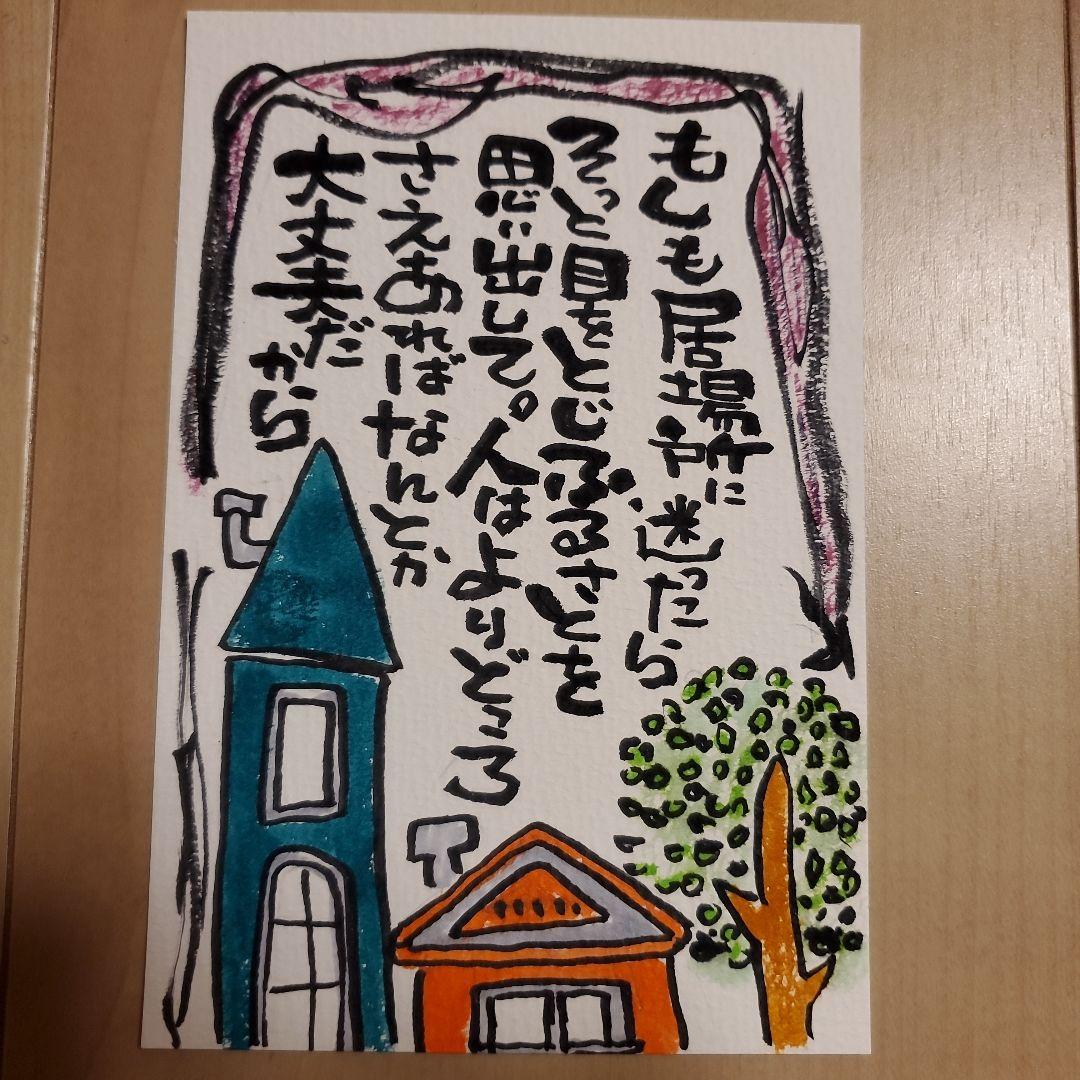 もしも居場所に迷ったら
そっと目をとじふるさとを
思い出して。人はよりどころ
さえあればなんとか
大丈夫だから